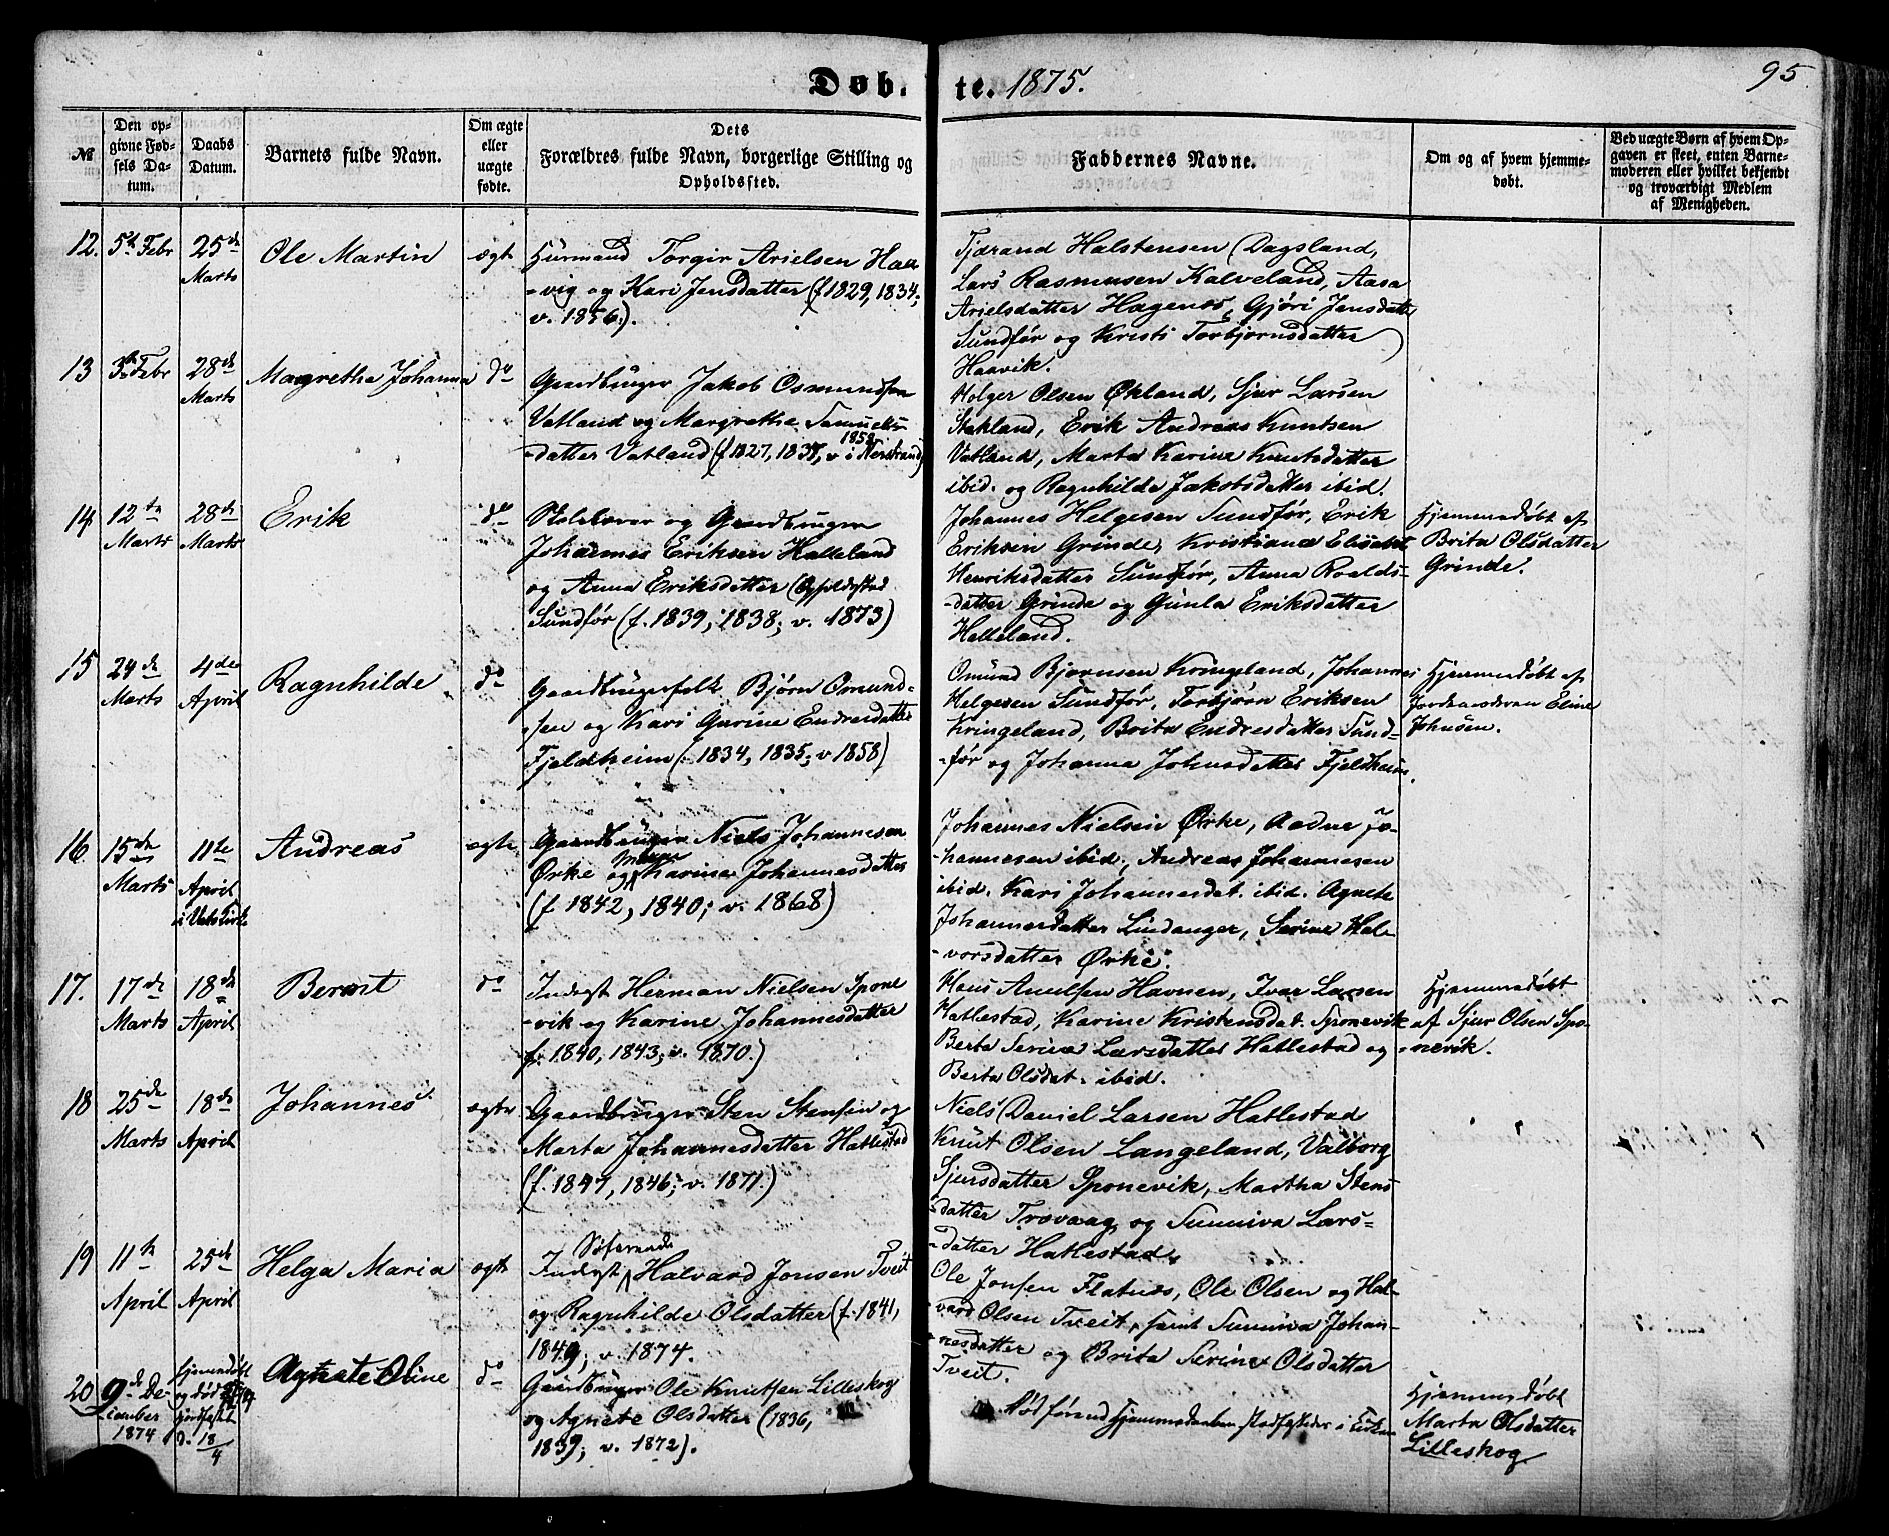 Døb. te. 1875.
95.
№
Den opgivne Fødsels Datum.
Daabs Datum.
Barnets fulde Navn.
Om ægte eller uægte fødte.
Dets Forældres fulde Navn, borgerlige Stilling og Opholdssted.
Faddernes Navne.
Om og af hvem hjemmedøbt.
Ved uægte Børn af hvem Opgaven er skeet, enten Barnemoderen eller hvilket bekjendt og troværdigt Medlem af Menigheden.
12. 5te Febr 25de Marts
Ole Martin
ægte
Huusmand Torgir Arielsen Haa-
-vig og Kari Jensdatter (f. 1829, 1834;
v. 1856.).
Tjærand Halstensen Dagsland,
Lars Rasmussen Kalveland, Aasa
Arielsdatter Hagenæs, Gjøri Jensdatter
Sundfør og Kristi Torbjørnsdatter
Haavik.
13 3die Febr 28de Marts
Magrethe Johanna
do
Gaardbruger Jakob Osmundsen
Vatland og Margrethe Samuels-
-datter Vatland (f 1827, 1837, v. 1858 i Nerstrand)
Holger Olsen Økland, Sjur Larsen
Stakland, Erik Andreas Knutsen
Vatland, Marta Karine Knutsdatter
ibid. og Ragnhilde Jakobsdatter ibid.
14 12te Marts 28de Marts
Erik
do
Skolelærer og Gaardbruger
Johannes Eriksen Halleland
og Anna Eriksdatter (Opholdssted
Sundfør (f. 1839; 1838; v. 1873)
Johannes Helgesen Sundfør, Erik
Eriksen Grinde, Kristiane Elisabet
Henriksdatter Sundfør, Anna Roalds-
-datter Grinde og Gunla Eriksdatter
Helleland.
Hjemmedøbt af
Brita Olsdatter
Grinde.
15 24de Marts 4de April
Ragnhilde
do
Gaardbrugerfolk Bjørn Osmund-
-sen og Kari Gurine Endresdatter
Fjeldheim (1834, 1835; v 1858)
Osmund Bjørnsen Kringeland, Johannes
Helgesen Sundfør, Torbjørn Eriksen
Kringeland, Brita Endresdatter Sund-
-før og Johanna Johnsdatter Fjeldheim.
Hjemmedøbt af
Jordemoderen Eline
Johnsen.
16. 15de Marts 11te April i Vats Kirke
Andreas
ægte
Gaardbruger Niels Johannesen
Ørke og Karine Johannesdatter
(f. 1842, 1840; v. 1868)
Johannes Nielsen Ørke, Aadne Jo-
-hannesen ibid., Andreas Johannesen
ibid. Kari Johannesdat. ibid. Agnete
Johannesdatter Lindanger, Serine Hal-
-vorsdatter Ørke.
17. 17de Marts 18de April
Bernt
do
Inderst Herman Nielsen Spone
-vik og Karine Johannesdatter
f. 1840, 1843; v. 1870.)
Hans Amelsen Havnen, Ivar Larsen
Hatlestad, Karine Kristensdat. Sponevik
Berta Serine Larsdatter Hatlestad og
Berta Olsdat. ibid.
Hjemmedøbt
af Sjur Olsen Spo-
-nevik.
18 25de Marts 18de April
Johannes
ægte
Gaardbruger Sten Stensen og
Marta Johannesdatter Hatlestad
(f. 1847, 1846; v. 1871.)
Niels Daniel Larsen Hatlestad
Knut Olsen Langeland, Valborg
Sjursdatter Sponevik, Martha Stens-
datter Trovaag og Sunniva Lars-
-datter Hatlestad.
19 11te April 25de April
Helga Maria
ægte
Inderst Søfarende Halvard Jonsen Tveit
og Ragnhilde Olsdatter (f. 1841,
1849; v. 1874.
Ole Jonsen Flatnes, Ole Olsen og Hal-
vard Olsen Tveit, samt Sunniva Johan-
nesdatter og Brita Serine Olsdatter
Tveit.
20 9de December 1874
Hjemmedøbt og død
jordfæstet d. 18/4
Agnete Oline
do
Gaardbruger Ole Knutsen Lilleskog
og Agnete Olsdatter (1836,
1839; v. 1872).
Død førend Hjemmedaaben stadfæstedes i Kirken
Hjemmedøbt
Marta Olsdatter
Lilleskog